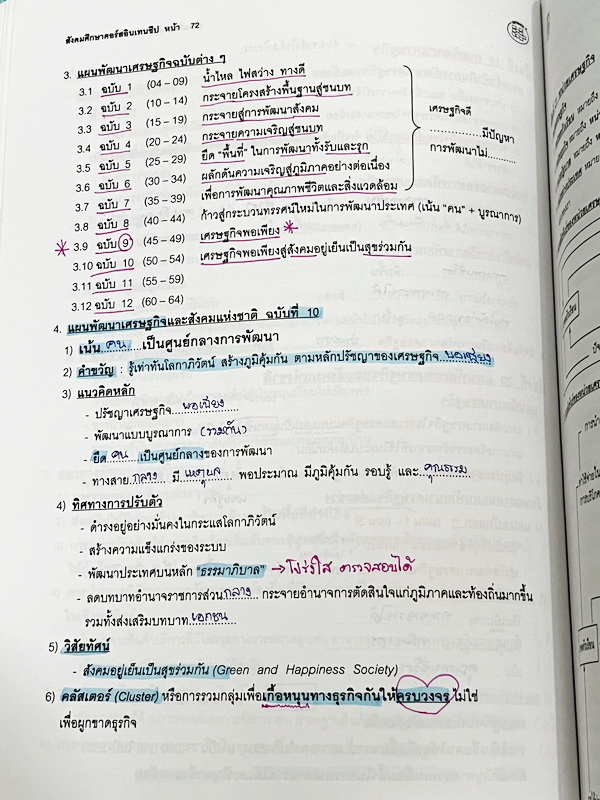 สังคมศึกษาคอร์สอินเทนซีป หน้า 72
3. แผนพัฒนาเศรษฐกิจฉบับต่าง ๆ
3.1 ฉบับ 1 (04 – 09) น้ำไหล ไฟสว่าง ทางดี
3.2 ฉบับ 2 (10 – 14) กระจายโครงสร้างพื้นฐานสู่ชนบท
3.3 ฉบับ 3 (15 – 19) กระจายสู่การพัฒนาสังคม
3.4 ฉบับ 4 (20 – 24) กระจายความเจริญสู่ชนบท
3.5 ฉบับ 5 (25 – 29) ยึด “พื้นที่” ในการพัฒนาทั้งรับและรุก
3.6 ฉบับ 6 (30 – 34) ผลักดันความเจริญสู่ภูมิภาคอย่างต่อเนื่อง
3.7 ฉบับ 7 (35 – 39) เพื่อการพัฒนาคุณภาพชีวิตและสิ่งแวดล้อม
เศรษฐกิจดี
...............มีปัญหา
การพัฒนาไม่........
3.8 ฉบับ 8 (40 – 44) ก้าวสู่กระบวนทรรศน์ใหม่ในการพัฒนาประเทศ (เน้น “คน” + บูรณาการ)
* 3.9 ฉบับ 9 (45 – 49) เศรษฐกิจพอเพียง *
3.10 ฉบับ 10 (50 – 54) เศรษฐกิจพอเพียงสู่สังคมอยู่เย็นเป็นสุขร่วมกัน
3.11 ฉบับ 11 (55 – 59)
3.12 ฉบับ 12 (60 – 64)
4. แผนพัฒนาเศรษฐกิจและสังคมแห่งชาติ ฉบับที่ 10
1) เน้น คน เป็นศูนย์กลางการพัฒนา
2) คำขวัญ : รู้เท่าทันโลกาภิวัตน์ สร้างภูมิคุ้มกัน ตามหลักปรัชญาของเศรษฐกิจ พอเพียง
3) แนวคิดหลัก
- ปรัชญาเศรษฐกิจ พอเพียง
- พัฒนาแบบบูรณาการ (รวมกัน)
- ยึด คน เป็นศูนย์กลางของการพัฒนา
- ทางสาย กลาง มี เหตุผล พอประมาณ มีภูมิคุ้มกัน รอบรู้ และ คุณธรรม
4) ทิศทางการปรับตัว
- ดำรงอยู่อย่างมั่นคงในกระแสโลกาภิวัตน์
- สร้างความแข็งแกร่งของระบบ
- พัฒนาประเทศบนหลัก “ธรรมาภิบาล” → โปร่งใส ตรวจสอบได้
- ลดบทบาทอำนาจราชการส่วน กลาง กระจายอำนาจการตัดสินใจแก่ภูมิภาคและท้องถิ่นมากขึ้น
รวมทั้งส่งเสริมบทบาท เอกชน
5) วิสัยทัศน์
- สังคมอยู่เย็นเป็นสุขร่วมกัน (Green and Happiness Society)
6) คลัสเตอร์ (Cluster) หรือการรวมกลุ่มเพื่อเกื้อหนุนทางธุรกิจกันให้ครบวงจร ไม่ใช่
เพื่อผูกขาดธุรกิจ